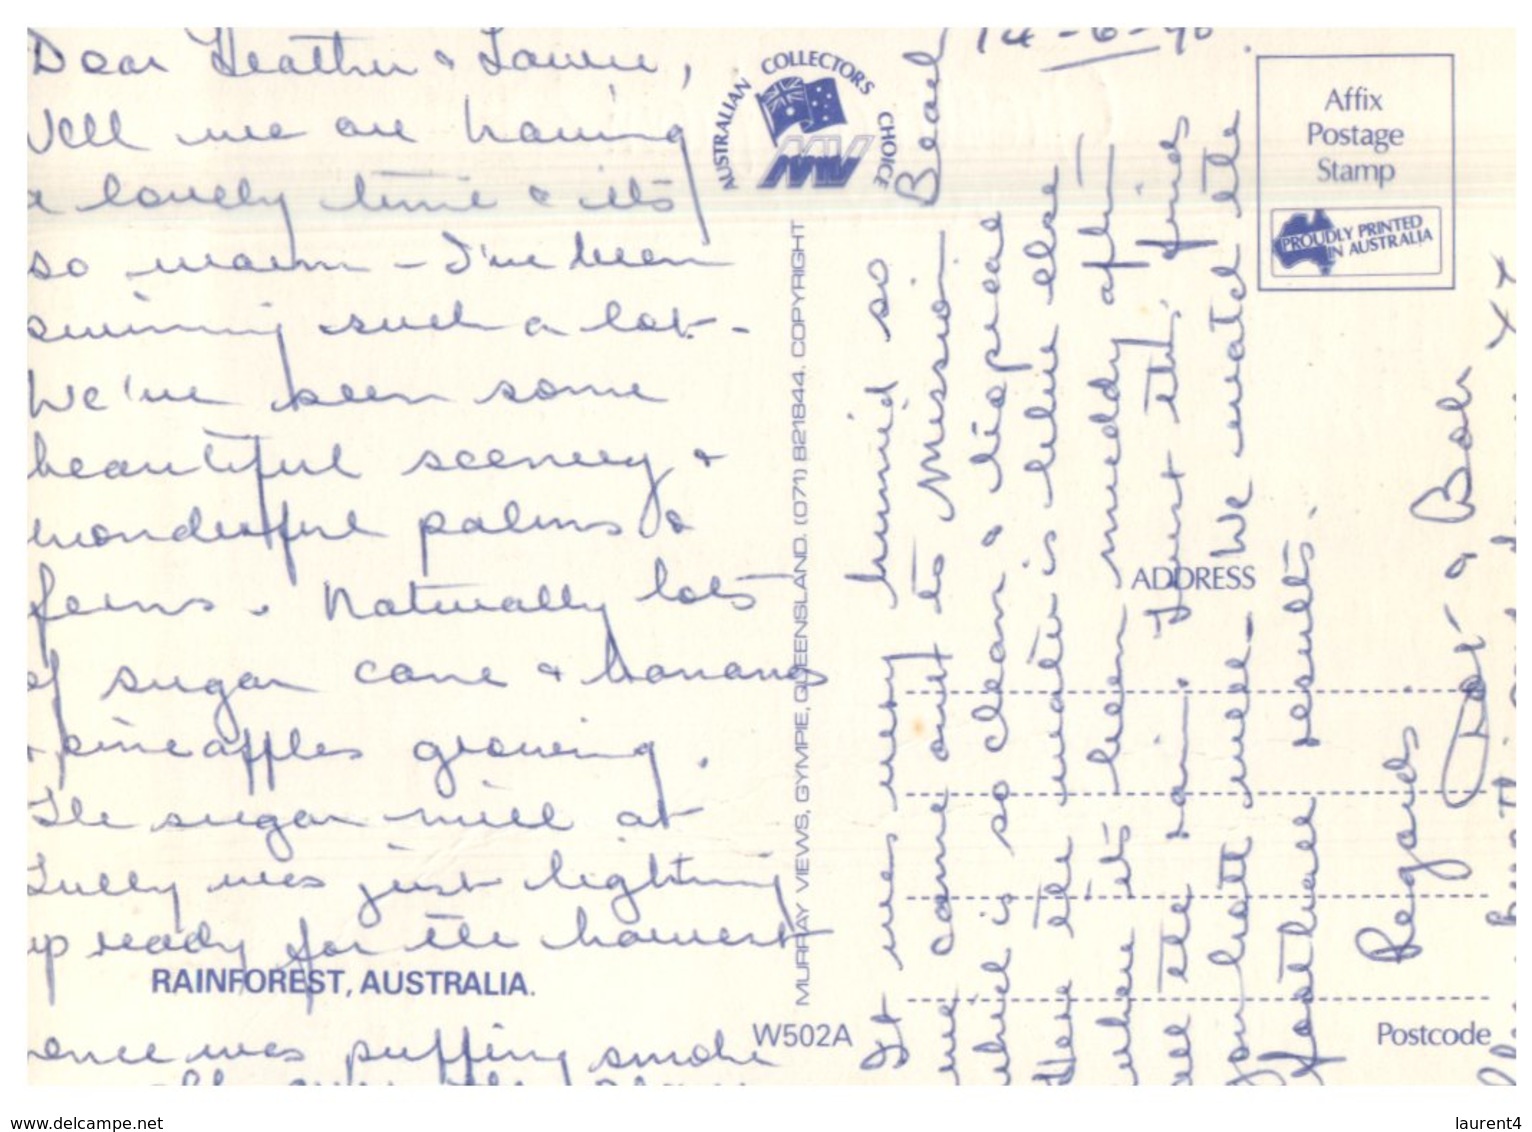 Dear Heather & Laurie,
Well we are having
a lovely time & it's
so warm - I've been
swimming such a lot -
We've seen some
beautiful scenery &
wonderful palms &
ferns. Naturally lots
of sugar cane & bananas
& pineapples growing.
The sugar mill at
Tully was just lighting
up ready for the harvest
RAINFOREST, AUSTRALIA.
once was puffing smoke
all over the
AUSTRALIAN COLLECTORS CHOICE
MV
MURRAY VIEWS, GYMPIE, QUEENSLAND. (071) 821844. COPYRIGHT
W502A
14-6-90
Affix
Postage
Stamp
PROUDLY PRINTED
IN AUSTRALIA
ADDRESS
Postcode
It was very humid so
we came out to Mission Beach
which is so clean & the
Here the water is blue else
where it's been muddy after
all the rain. Trust the
you both well. We watch the
football results.
Regards
Dot & Bob xx
www.delcampe.net
laurent4